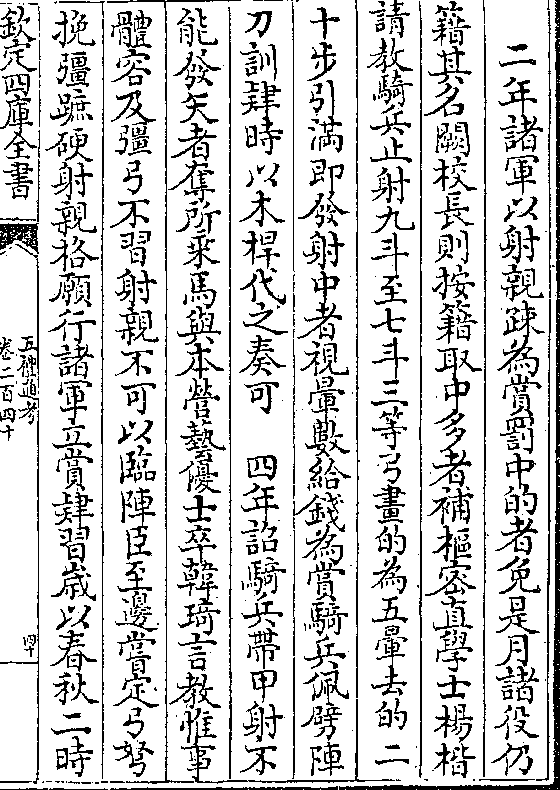 二年諸軍以射親疎為賞罰中的者免是月諸役仍
籍其名闕校長則按籍取中多者補樞密直學士楊楷
請教騎兵止射九斗至七斗三等弓畫的為五暈去的二
十步引滿即發射中者視暈數給錢為賞騎兵佩劈陣
刀訓肄時以木桿代之奏可　四年詔騎兵帶甲射不
能發矢者奪所乘馬與本營藝優士卒韓琦言教惟事
體容及彊弓不習射親不可以臨陣臣至邊嘗定弓弩
挽彊蹠硬射親格願行諸軍立賞肄習嵗以春秋二時
欽定四庫全書
五禮通考
卷二百四十
四十